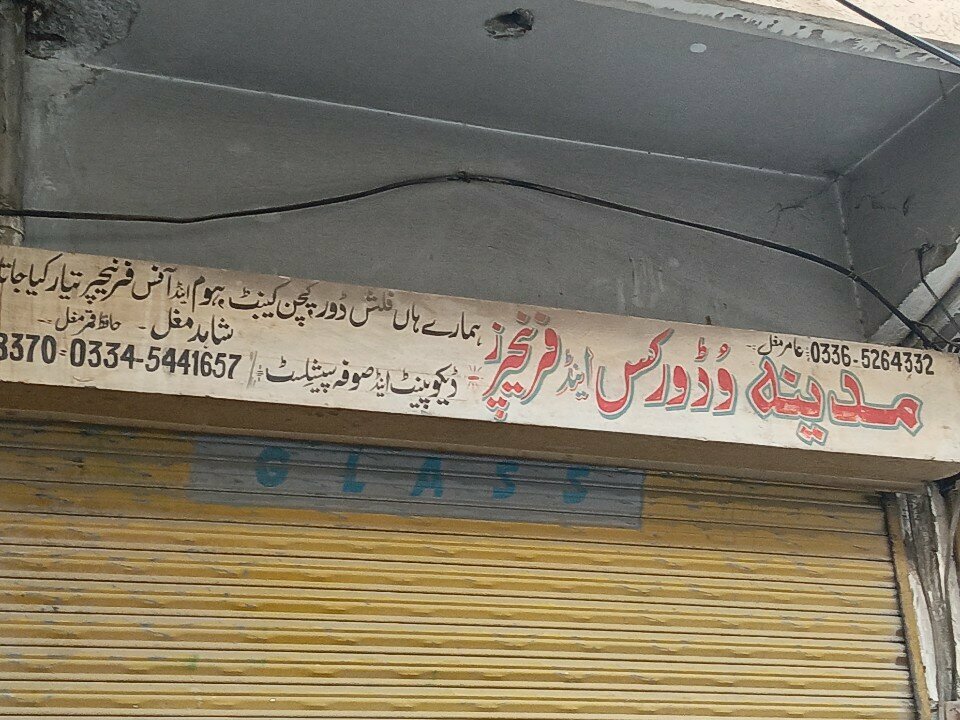 عامر مغل 0336-5264332
مدینہ وُڈورکس اینڈ فرنیچرز
ہمارے ہاں فلش ڈور، کچن کیبنٹ، ہوم اینڈ آفس فرنیچر تیار کیا جاتا
شاہد مغل حافظ قمر مغل
ڈیکو پینٹ اینڈ صوفہ سپیشلسٹ 0334-5441657 8370
GLASS